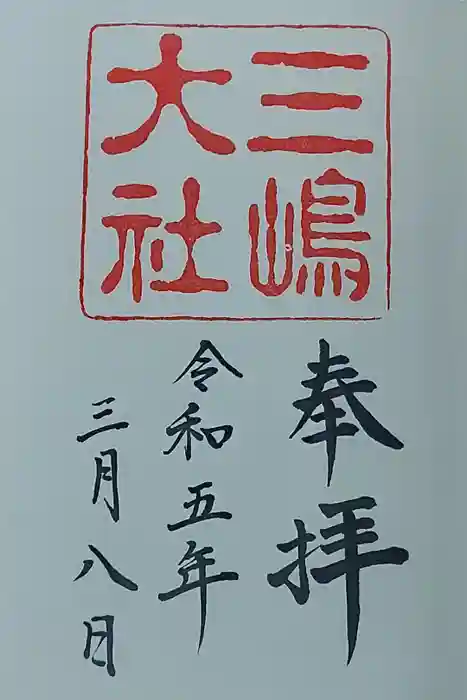 三嶋
大社
奉拝
令和五年
三月八日